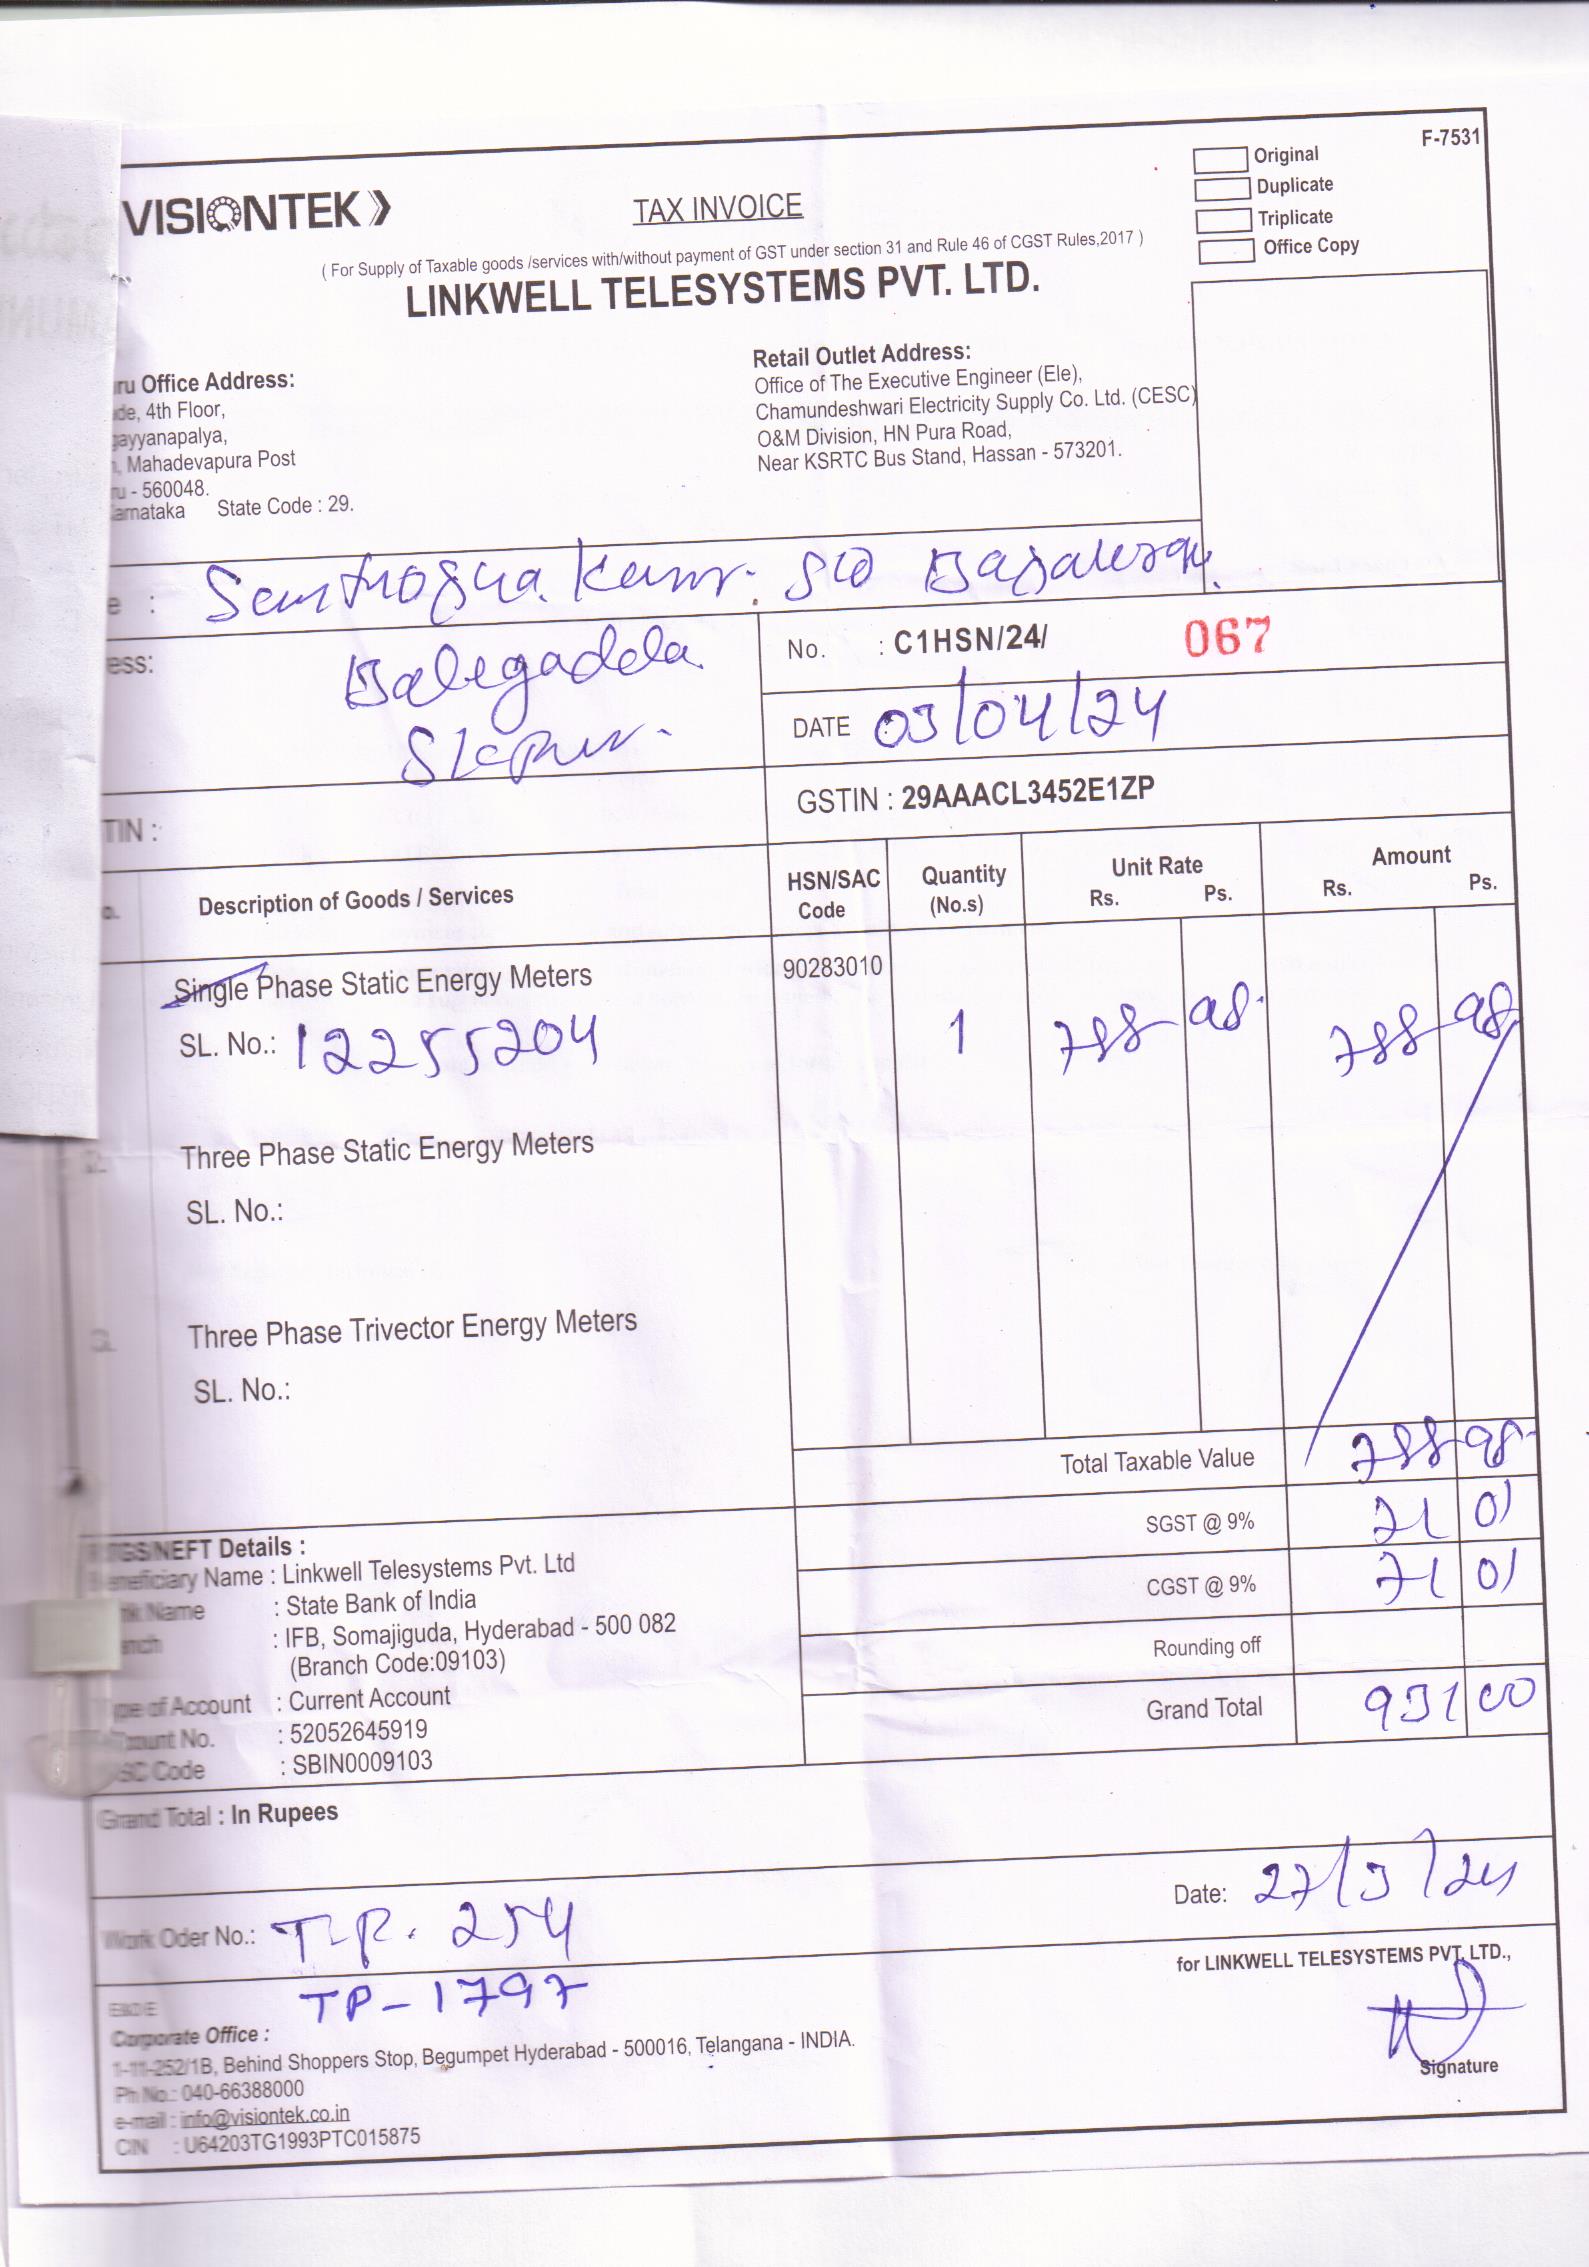 F-7531
Original
Duplicate
Triplicate
Office Copy
VISIONTEK
TAX INVOICE
( For Supply of Taxable goods /services with/without payment of GST under section 31 and Rule 46 of CGST Rules,2017 )
LINKWELL TELESYSTEMS PVT. LTD.
Office Address:
4th Floor,
Mahadevapura Post
- 560048.
State Code : 29.
Retail Outlet Address:
Office of The Executive Engineer (Ele),
Chamundeshwari Electricity Supply Co. Ltd. (CESC)
O&M Division, HN Pura Road,
Near KSRTC Bus Stand, Hassan - 573201.
: S/o
No. : C1HSN/24/ 067
DATE 03/04/24
GSTIN : 29AAACL3452E1ZP
Description of Goods / Services HSN/SAC Code Quantity (No.s) Unit Rate Rs. Ps. Amount Rs. Ps.
Single Phase Static Energy Meters 90283010
SL. No.: 12255204 1 788 98 788 98
Three Phase Static Energy Meters
SL. No.:
Three Phase Trivector Energy Meters
SL. No.:
Total Taxable Value 788 98
SGST @ 9% 71 01
CGST @ 9% 71 01
Rounding off
Grand Total 931 00
RTGS/NEFT Details :
Beneficiary Name : Linkwell Telesystems Pvt. Ltd
Name : State Bank of India
: IFB, Somajiguda, Hyderabad - 500 082
(Branch Code:09103)
Type of Account : Current Account
No. : 52052645919
Code : SBIN0009103
Grand Total : In Rupees
Work Oder No.: T.P. 254
Date: 27/3/24
TP-1797
for LINKWELL TELESYSTEMS PVT. LTD.,
Signature
E&OE
Corporate Office :
1-11-252/1B, Behind Shoppers Stop, Begumpet Hyderabad - 500016, Telangana - INDIA.
Ph No.: 040-66388000
e-mail : info@visiontek.co.in
CIN : U64203TG1993PTC015875